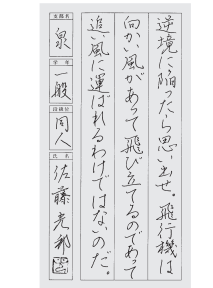 逆境に陥ったら思い出せ。飛行機は
向かい風があって飛び立てるのであって
追い風に運ばれるわけではないのだ。
支部名
泉
学年
一般
段級位
同人
氏名
佐藤光郁